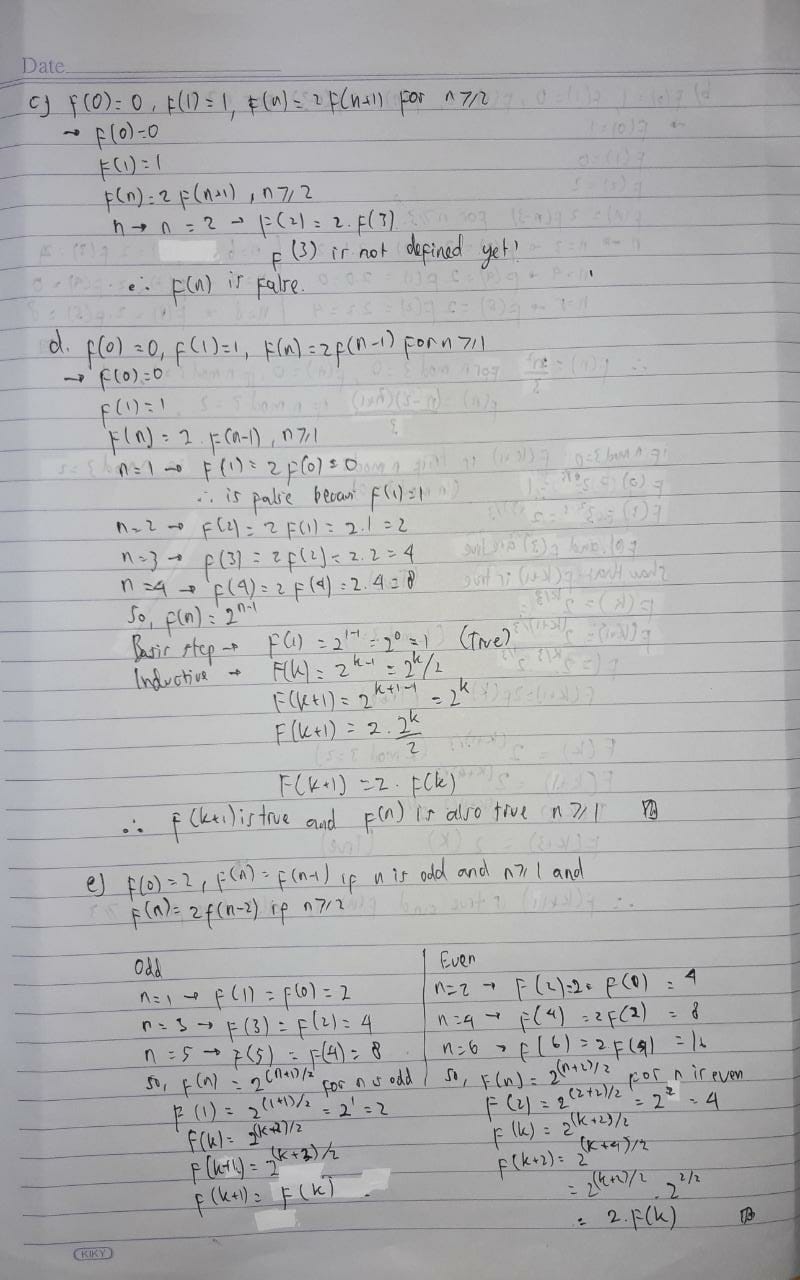 Date
c) f(0) = 0, f(1) = 1, f(n) = 2 f(n+1) for n ≥ 2
→ f(0) = 0
f(1) = 1
f(n) = 2 f(n+1), n ≥ 2
n → n = 2 → f(2) = 2. f(3)
f(3) is not defined yet!
∴ f(n) is false.
d. f(0) = 0, f(1) = 1, f(n) = 2f(n-1) for n ≥ 1
→ f(0) = 0
f(1) = 1
f(n) = 2. f(n-1), n ≥ 1
n = 1 → f(1) = 2 f(0) = 0
∴ is false becau f(1) = 1
n = 2 → f(2) = 2 f(1) = 2.1 = 2
n = 3 → f(3) = 2 f(2) = 2.2 = 4
n = 4 → f(4) = 2 f(4) = 2.4 = 8
So, f(n) = 2^{n-1}
Basic step → f(1) = 2^{1-1} = 2^0 = 1 (True)
Inductive → f(k) = 2^{k-1} = 2^k/2
f(k+1) = 2^{k+1-1} = 2^k
f(k+1) = 2. 2^k/2
f(k+1) = 2. f(k)
∴ f(k+1) is true and f(n) is also true n ≥ 1
e) f(0) = 2, f(n) = f(n-1) if n is odd and n ≥ 1 and
f(n) = 2f(n-2) if n ≥ 2
Odd
n = 1 → f(1) = f(0) = 2
n = 3 → f(3) = f(2) = 4
n = 5 → f(5) = f(4) = 8
so, f(n) = 2^{(n+1)/2} for n is odd
f(1) = 2^{(1+1)/2} = 2^1 = 2
f(k) = 2^{(k+2)/2}
f(k+1) = 2^{(k+2)/2}
f(k+1) = f(k)
Even
n = 2 → f(2) = 2. f(0) = 4
n = 4 → f(4) = 2f(2) = 8
n = 6 → f(6) = 2f(4) = 16
so, f(n) = 2^{(n+2)/2} for n is even
f(2) = 2^{(2+2)/2} = 2^2 = 4
f(k) = 2^{(k+2)/2}
f(k+2) = 2^{(k+4)/2}
= 2^{(k+2)/2} . 2^{2/2}
= 2. f(k)
KIKY